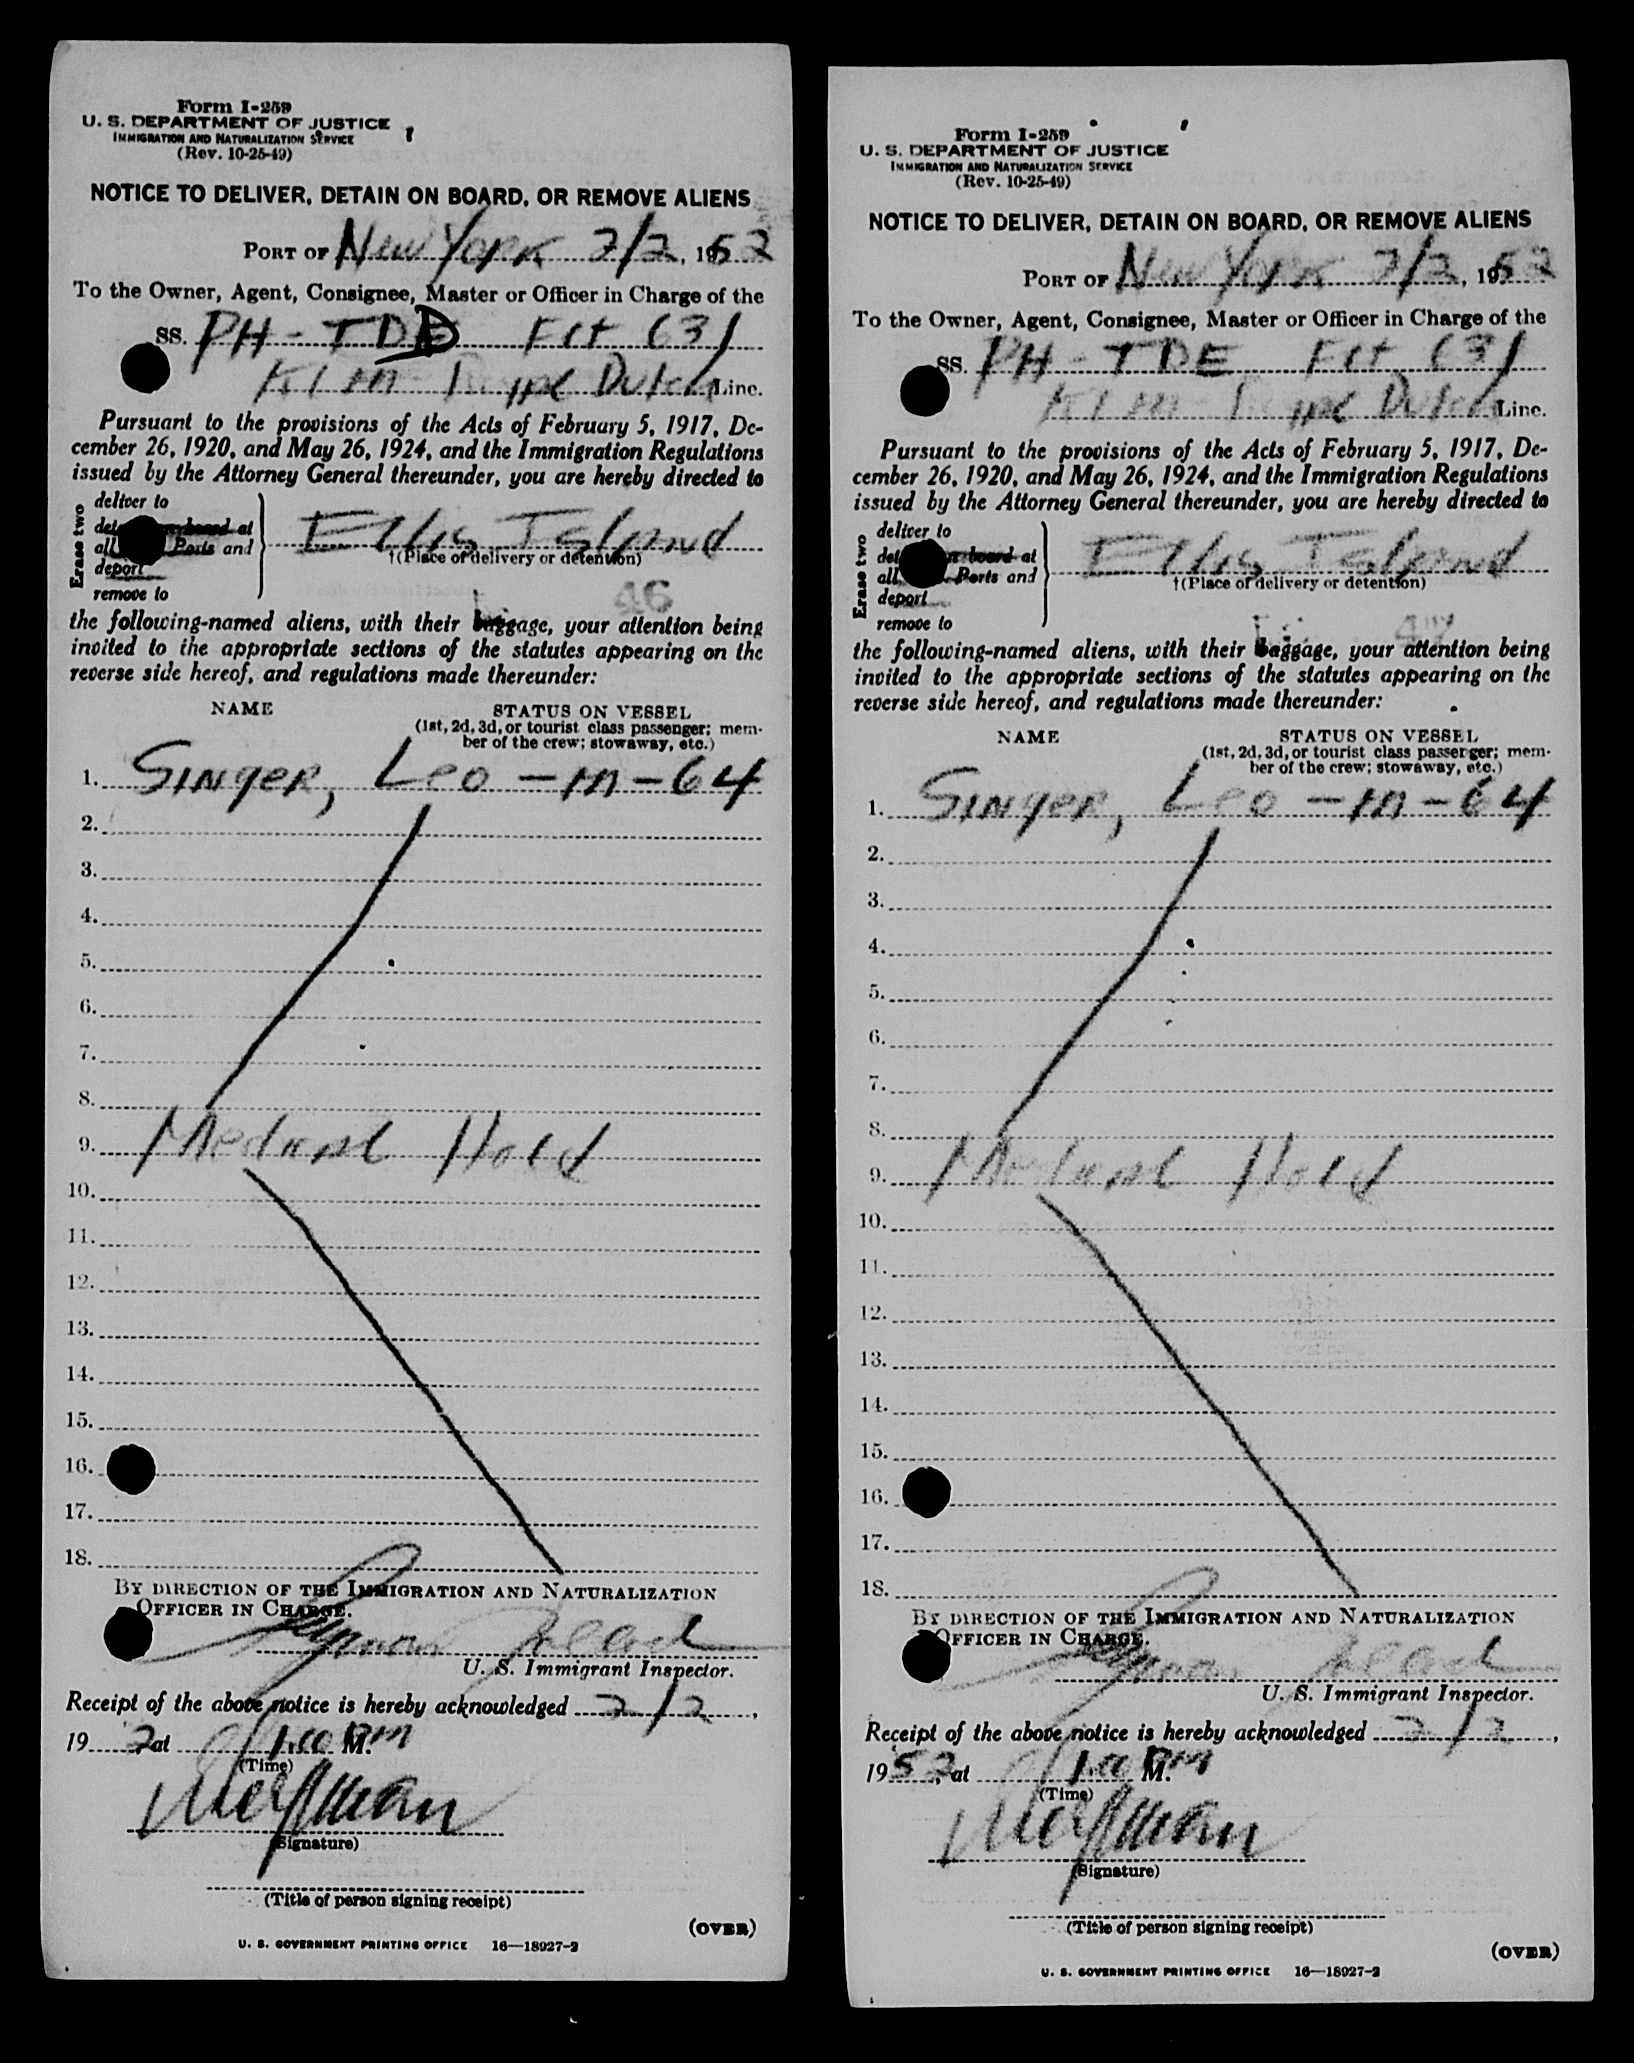 Form I-259
U. S. DEPARTMENT OF JUSTICE
IMMIGRATION AND NATURALIZATION SERVICE
(Rev. 10-25-49)
NOTICE TO DELIVER, DETAIN ON BOARD, OR REMOVE ALIENS
PORT OF New York 2/2, 1952
To the Owner, Agent, Consignee, Master or Officer in Charge of the
SS. PH-TDE Flt 631
KLM Dutch Line.
Pursuant to the provisions of the Acts of February 5, 1917, De-
cember 26, 1920, and May 26, 1924, and the Immigration Regulations
issued by the Attorney General thereunder, you are hereby directed to
Erase two
deliver to
on board at
all Ports and
deport
remove to
Ellis Island
†(Place of delivery or detention)
46
the following-named aliens, with their baggage, your attention being
invited to the appropriate sections of the statutes appearing on the
reverse side hereof, and regulations made thereunder:
NAME STATUS ON VESSEL
(1st, 2d, 3d, or tourist class passenger; mem-
ber of the crew; stowaway, etc.)
1. Singer, Leo - m - 64
2.
3.
4.
5.
6.
7.
8.
9. Medical Hold
10.
11.
12.
13.
14.
15.
16.
17.
18.
BY DIRECTION OF THE IMMIGRATION AND NATURALIZATION
OFFICER IN CHARGE.
U. S. Immigrant Inspector.
Receipt of the above notice is hereby acknowledged 2/2,
19 2 at M.
(Time)
(Signature)
(Title of person signing receipt)
(OVER)
U. S. GOVERNMENT PRINTING OFFICE 16—18927-2
Form I-259
U. S. DEPARTMENT OF JUSTICE
IMMIGRATION AND NATURALIZATION SERVICE
(Rev. 10-25-49)
NOTICE TO DELIVER, DETAIN ON BOARD, OR REMOVE ALIENS
PORT OF New York 2/2, 1952
To the Owner, Agent, Consignee, Master or Officer in Charge of the
SS. PH-TDE Flt 631
KLM Dutch Line.
Pursuant to the provisions of the Acts of February 5, 1917, De-
cember 26, 1920, and May 26, 1924, and the Immigration Regulations
issued by the Attorney General thereunder, you are hereby directed to
Erase two
deliver to
on board at
all Ports and
deport
remove to
Ellis Island
†(Place of delivery or detention)
the following-named aliens, with their baggage, your attention being
invited to the appropriate sections of the statutes appearing on the
reverse side hereof, and regulations made thereunder:
NAME STATUS ON VESSEL
(1st, 2d, 3d, or tourist class passenger; mem-
ber of the crew; stowaway, etc.)
1. Singer, Leo - m - 64
2.
3.
4.
5.
6.
7.
8.
9. Medical Hold
10.
11.
12.
13.
14.
15.
16.
17.
18.
BY DIRECTION OF THE IMMIGRATION AND NATURALIZATION
OFFICER IN CHARGE.
U. S. Immigrant Inspector.
Receipt of the above notice is hereby acknowledged 2/2,
1952, at M.
(Time)
(Signature)
(Title of person signing receipt)
(OVER)
U. S. GOVERNMENT PRINTING OFFICE 16—18927-2